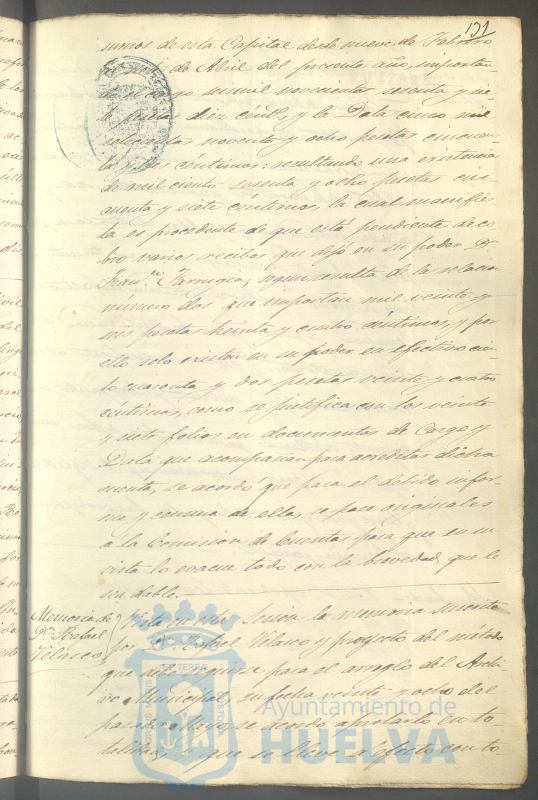 131
sumos de esta Capital desde nueve de Febrero
de Abril del presente año, importan-
do el cargo seis mil novecientas sesenta y sie-
te diez cénts, y la Data cinco mil
setecientas noventa y ocho pesetas cincuen-
ta y céntimos: resultando una existencia
de mil ciento sesenta y ocho pesetas cin-
cuenta y siete céntimos, la cual manifies-
ta es procedente de que está pendiente de co-
bro varios recibos que dejó en su poder Dn
Franco Farrugia, según resulta de la relación
número dos que importan mil veinte y
seis pesetas treinta y cuatro céntimos, y por
ello solo existen en su poder en efectivo cien-
to cuarenta y dos pesetas veinte y cuatro
céntimos, como se justifica con los veinte
y siete folios en documentos de Cargo y
Data que acompañan para acreditar dicha
cuenta, se acordó que para el debido infor-
me y censura de ella, se pase originales
a la Comision de Cuentas para que en su
vista lo evacue todo con la brevedad que le
sea dable.
Memoria de
Dn Rafael
Velasco
Vista en esta Sesion la memoria suscrita
por Dn Rafael Velasco y proyecto del metodo
que debe seguirse para el arreglo del Archi-
vo Municipal, su fecha veinte y ocho del
pasado Mayo, se acordó aprobarlo en to-
talidad y que se lleve a efecto con to
Ayuntamiento de
HUELVA